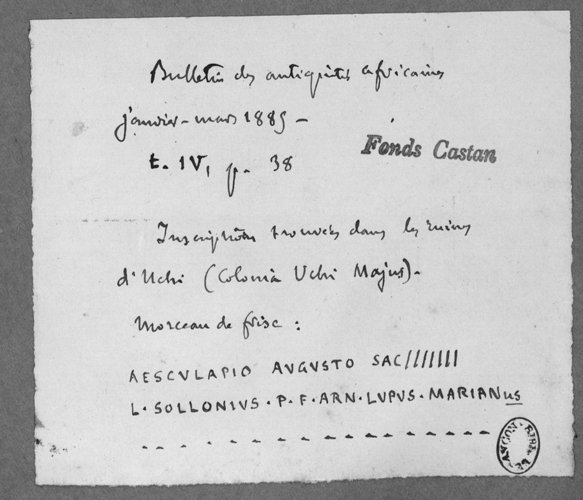 Bulletin des antiquités africaines
janvier-mars 1885 -
t. IV, p. 38
Fonds Castan
Inscriptions trouvées dans les ruines
d'Uchi (Colonia Uchi Majus).
Morceau de frise :
AESCVLAPIO AVGVSTO SAC///////
L. SOLLONIVS . P. F. ARN. LVPVS. MARIANus